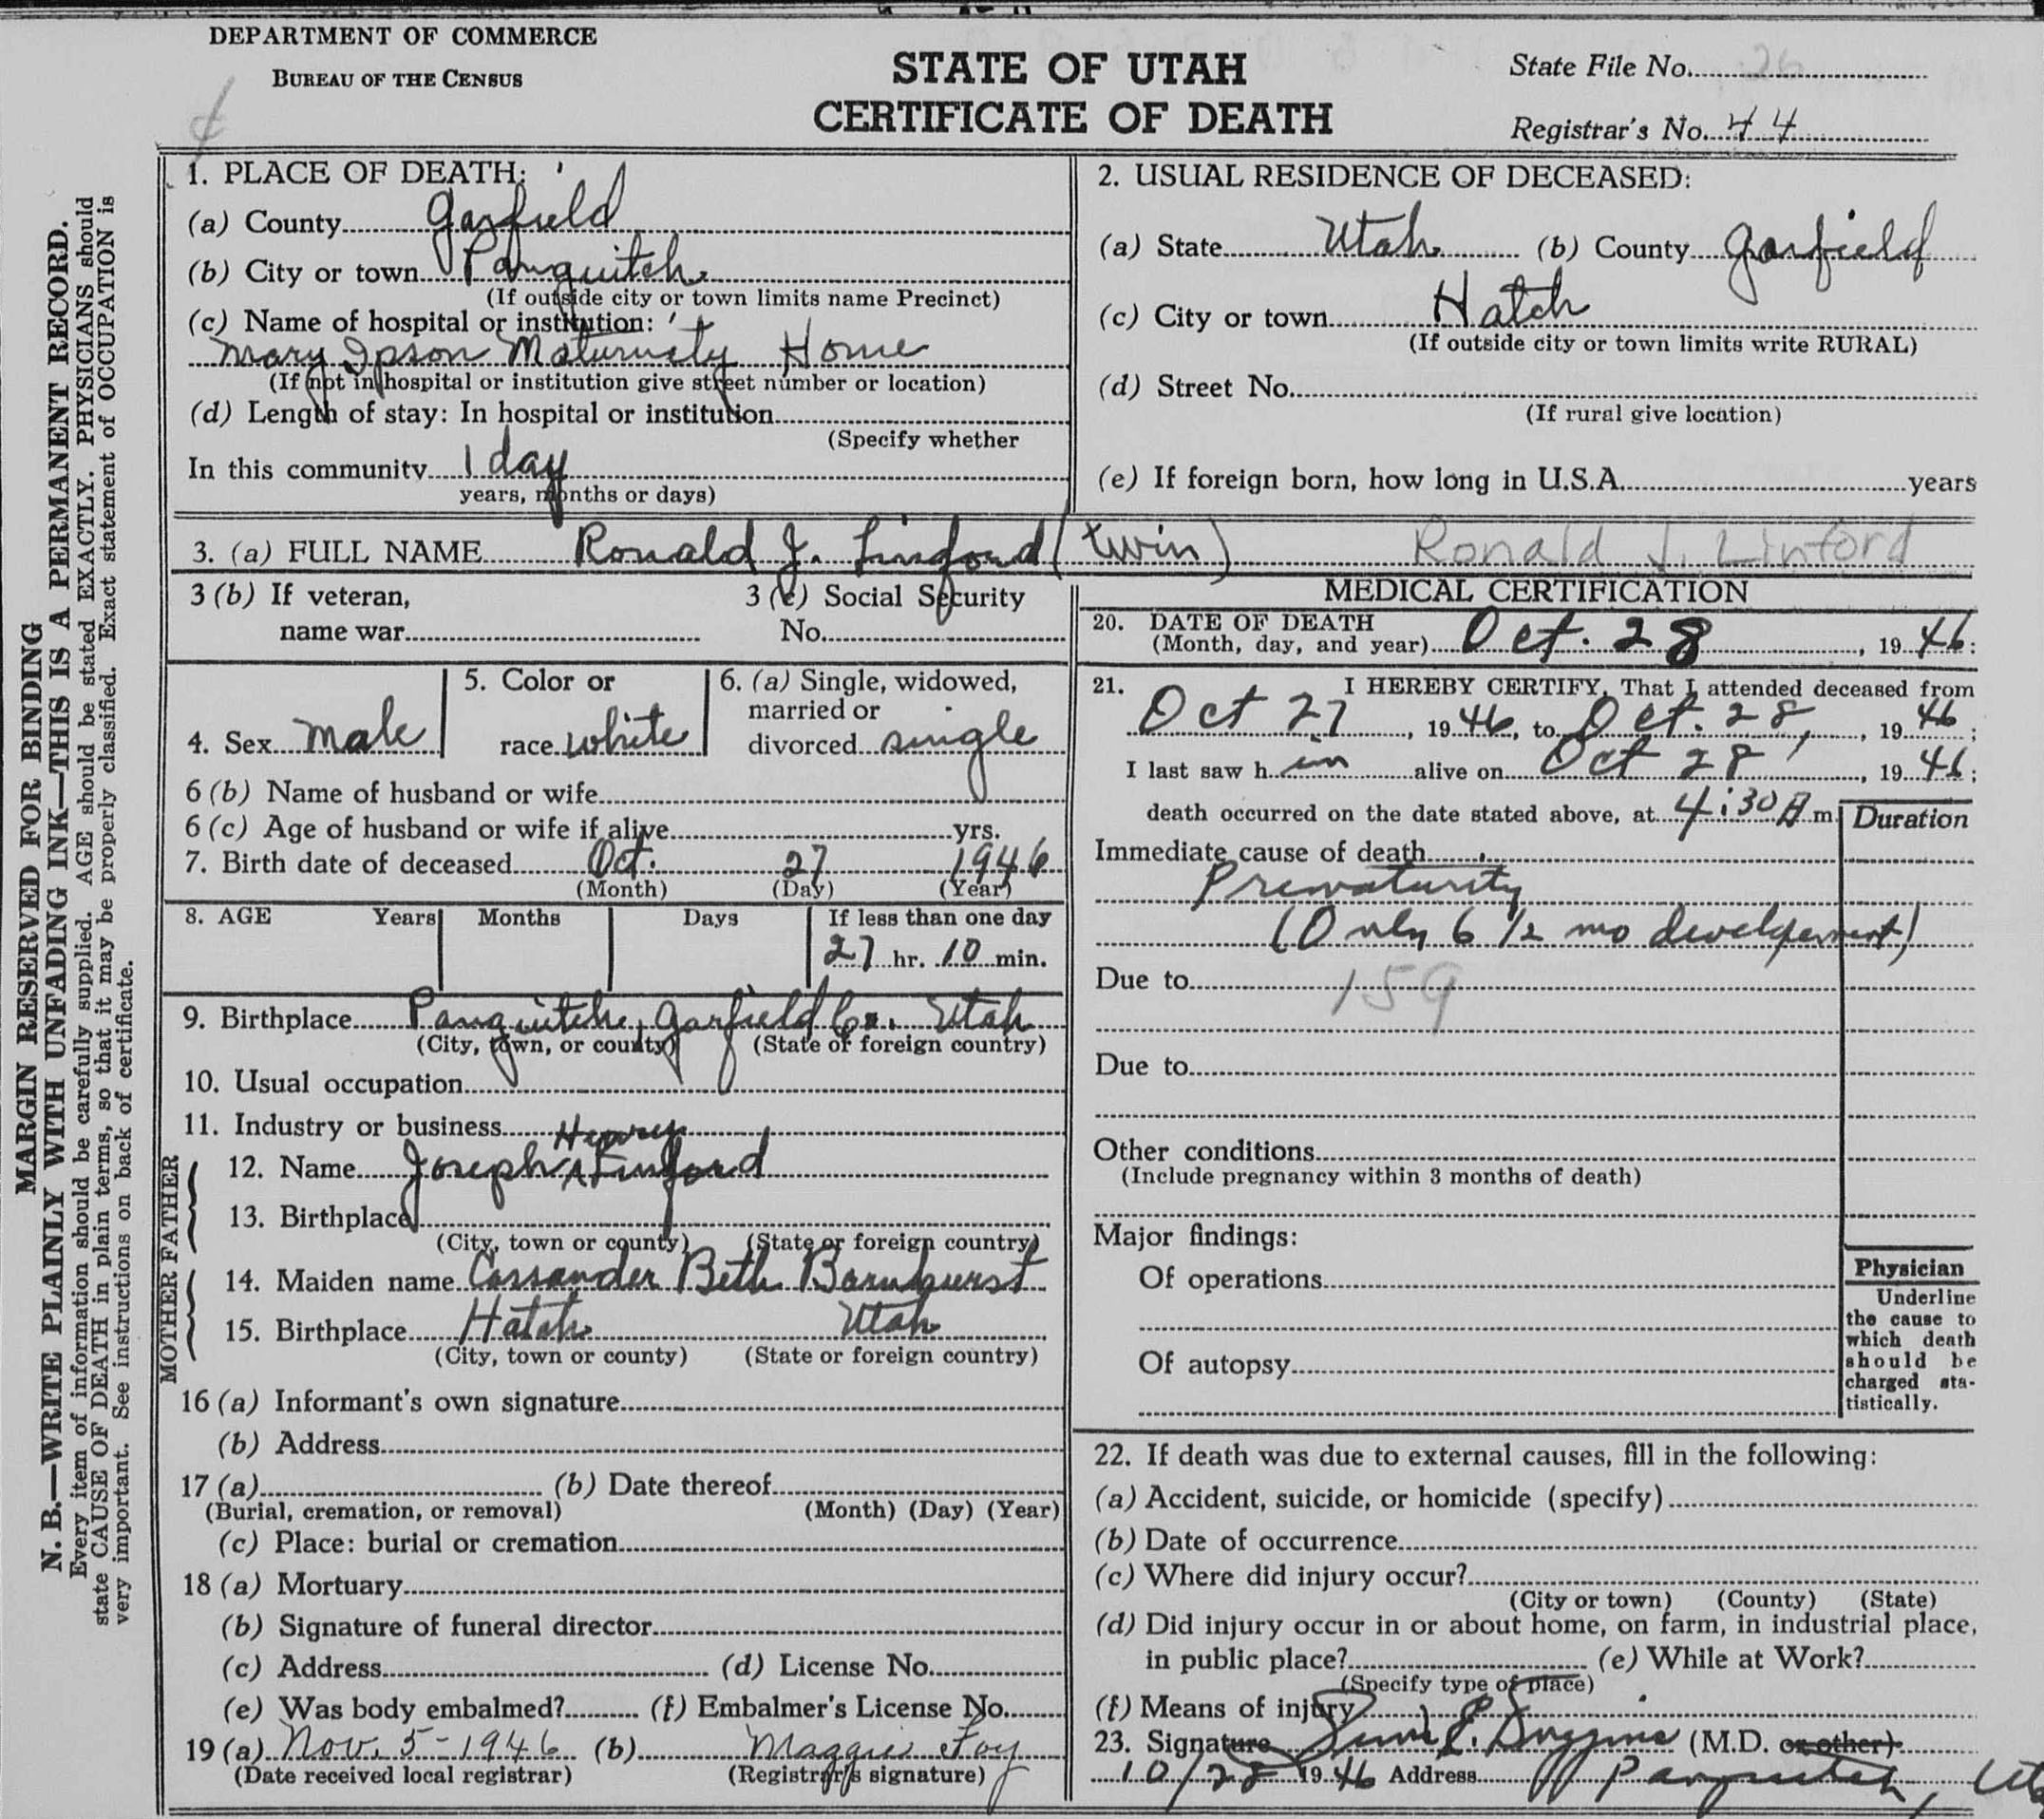 DEPARTMENT OF COMMERCE
BUREAU OF THE CENSUS
STATE OF UTAH
CERTIFICATE OF DEATH
State File No. 26
Registrar's No. 44
MARGIN RESERVED FOR BINDING
N. B.—WRITE PLAINLY WITH UNFADING INK—THIS IS A PERMANENT RECORD.
Every item of information should be carefully supplied. AGE should be stated EXACTLY. PHYSICIANS should
state CAUSE OF DEATH in plain terms, so that it may be properly classified. Exact statement of OCCUPATION is
very important. See instructions on back of certificate.
1. PLACE OF DEATH:
(a) County Garfield
(b) City or town Panguitch
(If outside city or town limits name Precinct)
(c) Name of hospital or institution:
Mary Ipson Maturnety Home
(If not in hospital or institution give street number or location)
(d) Length of stay: In hospital or institution
(Specify whether
In this community 1 day
years, months or days)
2. USUAL RESIDENCE OF DECEASED:
(a) State Utah (b) County Garfield
(c) City or town Hatch
(If outside city or town limits write RURAL)
(d) Street No.
(If rural give location)
(e) If foreign born, how long in U.S.A. years
3. (a) FULL NAME Ronald J. Linford (twin) Ronald J. Linford
3 (b) If veteran,
name war
3 (c) Social Security
No.
4. Sex male
5. Color or
race white
6. (a) Single, widowed,
married or
divorced single
6 (b) Name of husband or wife
6 (c) Age of husband or wife if alive yrs.
7. Birth date of deceased Oct. 27 1946
(Month) (Day) (Year)
8. AGE Years Months Days If less than one day
27 hr. 10 min.
9. Birthplace Panguitch, Garfield Co. Utah
(City, town, or county) (State or foreign country)
10. Usual occupation
11. Industry or business
FATHER
Henry
12. Name Joseph Linford
13. Birthplace
(City, town or county) (State or foreign country)
MOTHER
14. Maiden name Cassander Beth Barnhurst
15. Birthplace Hatch Utah
(City, town or county) (State or foreign country)
16 (a) Informant's own signature
(b) Address
17 (a) (b) Date thereof
(Burial, cremation, or removal) (Month) (Day) (Year)
(c) Place: burial or cremation
18 (a) Mortuary
(b) Signature of funeral director
(c) Address (d) License No.
(e) Was body embalmed? (f) Embalmer's License No.
19 (a) Nov. 5-1946 (b) Maggie Foy
(Date received local registrar) (Registrar's signature)
MEDICAL CERTIFICATION
20. DATE OF DEATH
(Month, day, and year) Oct. 28, 1946:
21. I HEREBY CERTIFY, That I attended deceased from
Oct 27, 1946, to Oct. 28, 1946;
I last saw him alive on Oct 28, 1946;
death occurred on the date stated above, at 4:30 A m.
Duration
Immediate cause of death
Prematurity
(Only 6 1/2 mo development)
Due to 159
Due to
Other conditions
(Include pregnancy within 3 months of death)
Major findings:
Of operations
Of autopsy
Physician
Underline
the cause to
which death
should be
charged sta-
tistically.
22. If death was due to external causes, fill in the following:
(a) Accident, suicide, or homicide (specify)
(b) Date of occurrence
(c) Where did injury occur?
(City or town) (County) (State)
(d) Did injury occur in or about home, on farm, in industrial place,
in public place? (e) While at Work?
(Specify type of place)
(f) Means of injury
23. Signature (M.D. or other)
10/28 1946 Address Panguitch, Ut